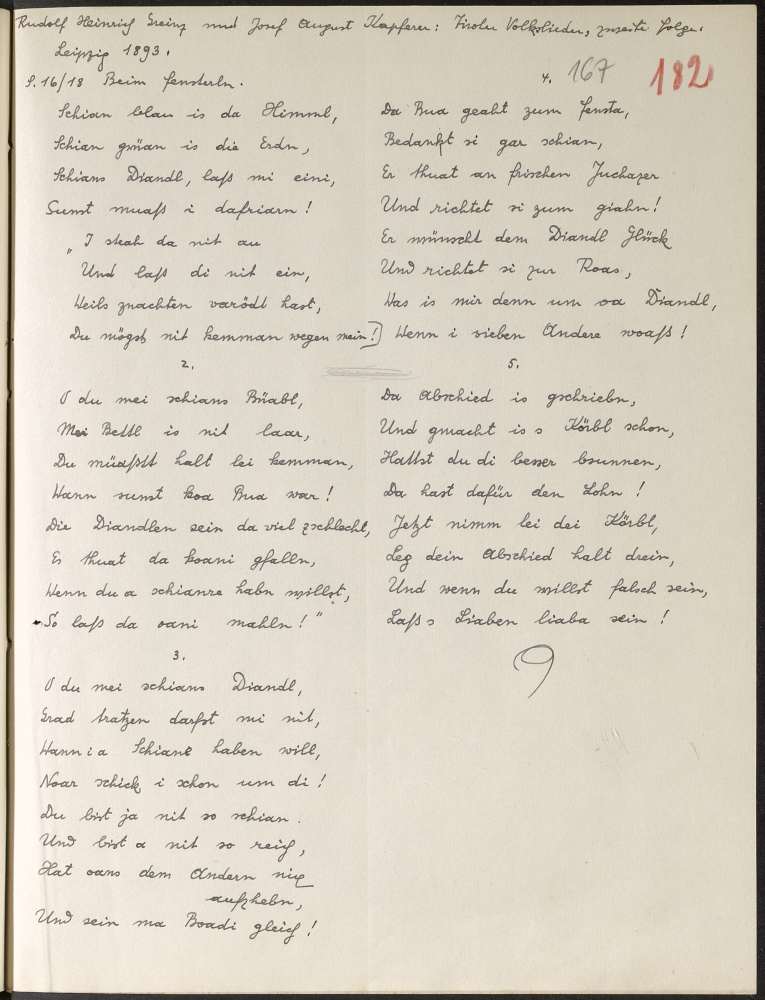 Rudolf Heinrich Greinz und Josef August Kapferer: Tiroler Volkslieder, zweite Folge.
Leipzig 1893.
S. 16/18 Beim Fensterln.
167
182
Schian blau is da Himml,
Schian grüan is die Erdn,
Schians Diandl, laß mi eini,
Sunst muaß i dafriarn!
„I steah da nit au
Und laß di nit ein,
Weils znachten varödt hast,
Du mögst nit kemman wegen mein!]
2.
O du mei schians Büabl,
Mei Bettl is nit laar,
Du müaßtt halt lei kemman,
Wann sunst koa Bua war!
Die Diandlen sein da viel zschlecht,
Es thuat da koani gfalln,
Wenn du a schianre habn willst,
So laß da oani mahln!"
3.
O du mei schians Diandl,
Grad tratzen darfst mi nit,
Wann i a Schiane haben will,
Noar schick i schon um di!
Du bist ja nit so schian.
Und bist a nit so reich,
Hat oans dem Andern nix
aufzhebn,
Und sein ma Boadi gleich!
4.
Da Bua geaht zum Fensta,
Bedankt si gar schian,
Er thuat an frischen Juchazer
Und richtet si zum giahn!
Er wünscht dem Diandl Glück
Und richtet si zur Roas,
Was is mir denn um oa Diandl,
Wenn i sieben Andere woaß!
5.
Da Abschied is gschriebn,
Und gmacht is s Körbl schon,
Hattst du di besser bsunnen,
Da hast dafür den Lohn!
Jetzt nimm lei dei Körbl,
Leg dein Abschied halt drein,
Und wenn du willst falsch sein,
Laß s Liaben liaba sein!